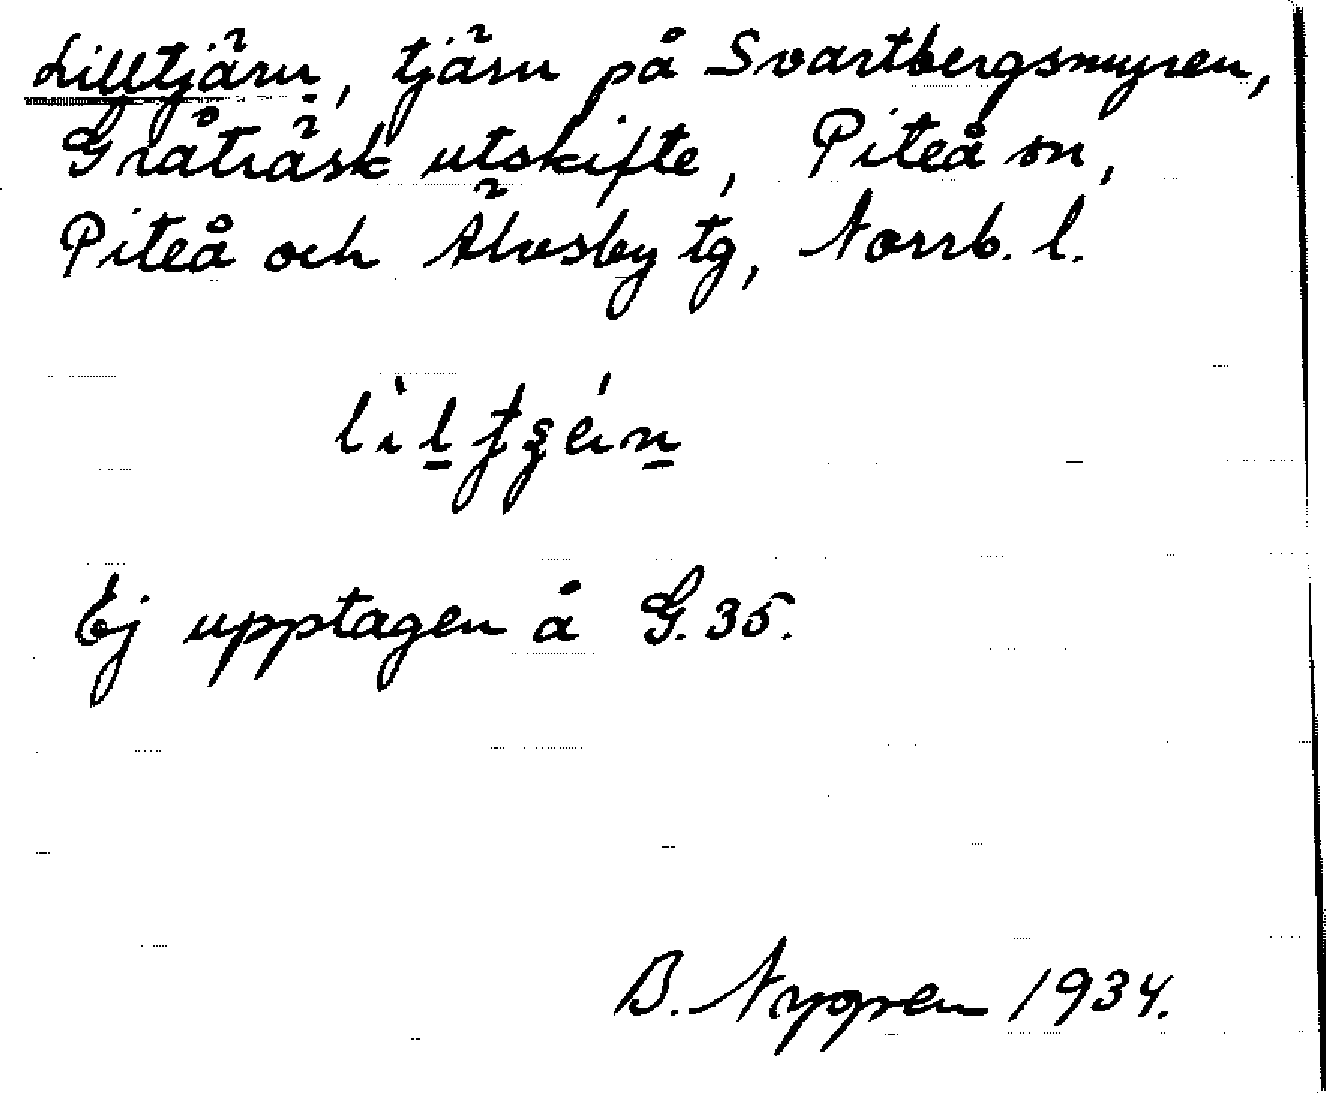 Lilltjärn, tjärn på Svartbergsmyren,
Gråträsk utskifte, Piteå sn,
Piteå och Älvsby tg, Norrb. l.
Ej upptagen å G. 35.
B. Nygren 1934.